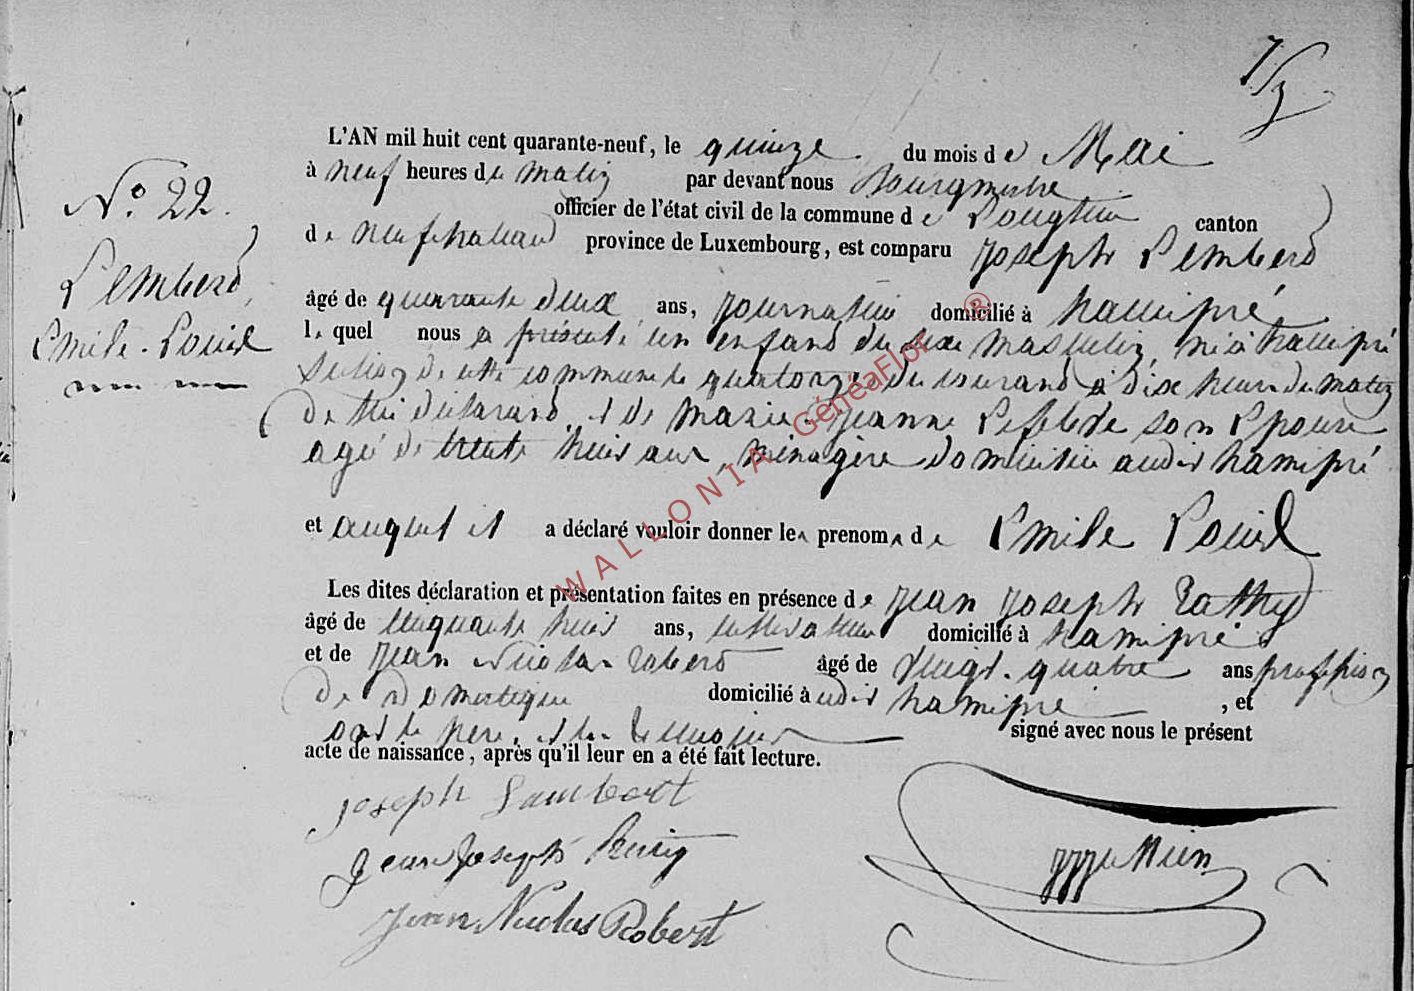 7/3
L'AN mil huit cent quarante-neuf, le quinze du mois de Mai
à neuf heures du matin par devant nous Bourgmestre
officier de l'état civil de la commune de Longlier canton
de neufchateau province de Luxembourg, est comparu Joseph Lemberd
N.º 22.
Lemberd,
Emile-Louis
âgé de quarante deux ans, journalier domicilié à hamipré
le quel nous a présenté un enfand du sexe masculin, né à hamipré
section de cette commune le quatorze du courand à dix heures du matin
de lui déclarand, et de marie-jeanne Lefebvre son Epouse
agé de trente huit ans, ménagère domiciliée audit hamipré
et auquel il a déclaré vouloir donner les prenoms de Emile Louis
Les dites déclaration et présentation faites en présence de jean joseph
âgé de cinquante huit ans, cultivateur domicilié à hamipré
et de jean Nicolas roberd âgé de vingt-quatre ans profession
de domestique domicilié à audit hamipré, et
ont le père, et les temoins signé avec nous le présent
acte de naissance, après qu'il leur en a été fait lecture.
Joseph Lambert
Jean Joseph
Jean Nicolas Robert
WALLONIA GénéaFlor ®